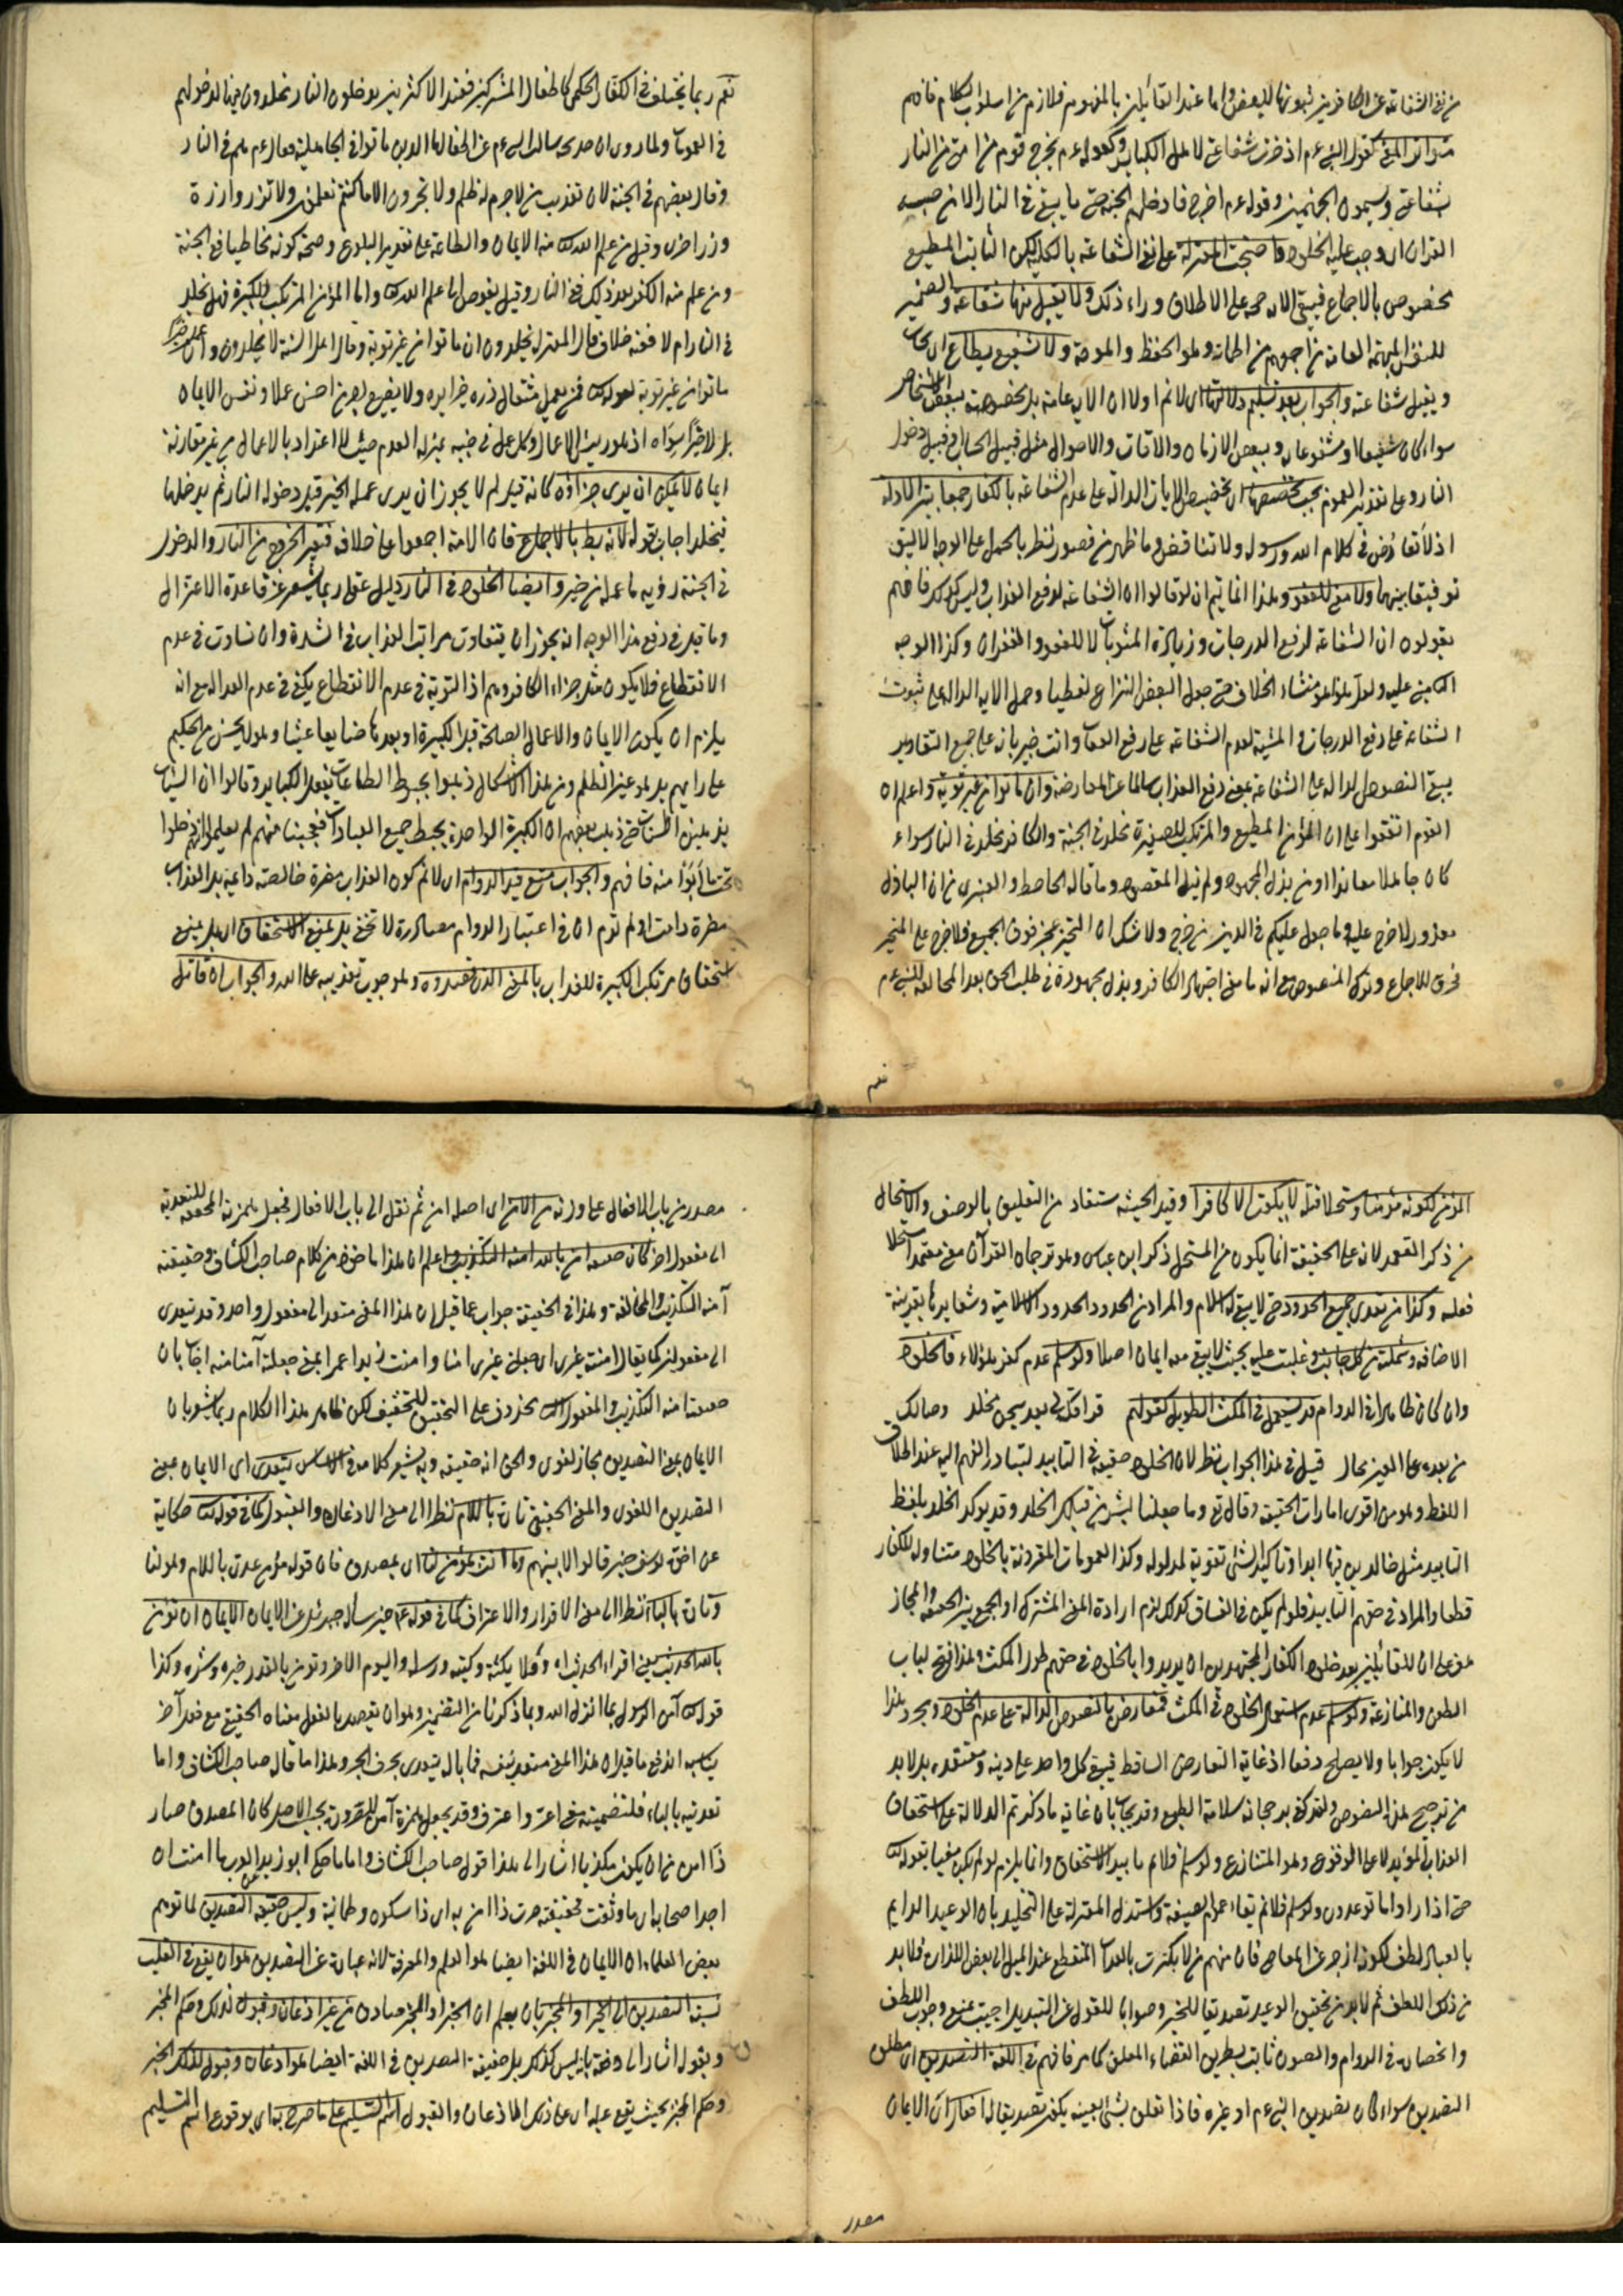 من نفى الشفاعة عن الكافرين ثبوتها للبعض واما عند القائلين بالمفهوم فلازم من اسلوب الكلام فافهم
متواتر المعنى كقول النبى عم اذخرت شفاعتى لاهل الكبائر وكقوله عم يخرج قوم من امتى من النار
بشفاعتى ويسمون الجهنميين وقوله عم اخرج فادخلهم الجنة حتى ما يبقى فى النار الا من حبسه
القران اى وجب عليه الخلود واحتجت المعتزلة على نفى الشفاعة بالكلية لكن الثابت المطيع
مخصوص بالاجماع فيبقى الاية حجة على الاطلاق وراء ذلك ولا يقبل منها شفاعة والضمير
للنفس المبهمة العامة ولا شفيع يطاع اى يجاب
ويقبل شفاعته والجواب بعد تسليم دلالتها اى لا نم اولا ان الاية عامة بل مخصوصة ببعض الاشخاص
سواء كان شفيعا او مشفوعا له وببعض الازمان والاوقات والاحوال مثل قبيل الحساب وقبيل دخول
النار وعلى تقدير العموم يجب تخصيصها اى تخصيص الايات الدالة على عدم الشفاعة بالكفار جمعا بين الادلة
اذ لا تعارض فى كلام الله ورسوله ولا تناقض وما ظهر من قصور نظر بالحمل على الوجه الاليق
توفيقا بينهما ولا معنى للعفو وهذا انما يتم ان لو قالوا ان الشفاعة لدفع العذاب وليس كذلك فانهم
يقولون ان الشفاعة لرفع الدرجات وزيادة المثوبات لا للعفو والغفران وكذا الوجه
الثانى عليه ولعل هذا هو منشاء الخلاف حتى جعل البعض النزاع لفظيا وحمل الاية الدالة على ثبوت
الشفاعة على رفع الدرجات والمثبتة لعدم الشفاعة على رفع العقاب وانت خبير بانه على جميع التقادير
يبقى النصوص الدالة على الشفاعة بمعنى دفع العذاب سالما عن المعارضة وان ماتوا من غير توبة واعلم ان
القوم اتفقوا على ان المؤمن المطيع والمرتكب للصغيرة مخلد فى الجنة والكافر مخلد فى النار سواء
كان جاهلا معاندا او من بذل المجهود ولم ينل المقصود وما قاله الجاحظ والعنبرى من ان الباذل
معذور لا حرج عليه وما جعل عليكم فى الدين من حرج ولا شك ان المتحير عجز فوق الجميع فلا حرج على المتحير
خرق للاجماع وترك المنصوص مع انه ما معنى اجتهاد الكافر وبذل مجهوده فى طلب الحق بعد المخالفة للنبى عم
نعم
نعم ربما يختلف فى الكفار الحكمى كاطفال المشركين فعند الاكثرين يدخلون النار مخلدون فيها لدخولهم
فى العمومات ولما روى ان خديجة سالت النبى عم عن اطفالها الذين ماتوا فى الجاهلية فقال عم هم فى النار
وقال بعضهم فى الجنة لان تعذيب من لا جرم له ظلم ولا تجزون الا ما كنتم تعملون ولا تزر وازرة
وزر اخرى وقيل من علم الله تعالى منه الايمان والطاعة على تقدير البلوغ وصحة كونه مخاطبا ففى الجنة
ومن علم منه الكفر بعد ذلك ففى النار وقيل يفوض الى علم الله تعالى واما المؤمن المرتكب للكبيرة فهل يخلد
فى النار ام لا ففيه خلاف قال المعتزلة يخلدون ان ماتوا من غير توبة وقال اهل السنة لا يخلدون وان
ماتوا من غير توبة لقوله تعالى فمن يعمل مثقال ذرة خيرا يره ولا يضيع اجر من احسن عملا ونفس الايمان عمل خير
بل لا خير سواه اذ هو رئيس الاعمال وكل عمل فى جنبه بمنزلة العدم حيث لا اعتداد بالاعمال من غير مقارنة
ايمان لا يمكن ان يرى جزاؤه كانه قيل لم لا يجوز ان يرى عمله الخير قبل دخوله النار ثم يدخلها
فيخلد اجاب بقوله لانه باطل بالاجماع فان الامة اجمعوا على خلافه فتعين الخروج من النار والدخول
فى الجنة رؤية ما عمله من خير وايضا الخلود فى النار دليل عقلى ربما يشعر عن قاعدة الاعتزال
وما قيل فى دفع هذا الوجه انه يجوز ان يتفاوت مراتب العذاب فى الشدة وان تساوت فى عدم
الانقطاع فلا يكون مثل جزاء الكافر وهم اذ التسوية فى عدم الانقطاع يكفى فى عدم العدالة مع انه
يلزم ان يكون الايمان والاعمال الصالحة قبل الكبيرة او بعدها ضايعا عبثا وهو لا يحسن من الحكيم
على رايهم بل هو عين الظلم ومن هذا الاشكال ذهبوا بحبوط الطاعات بفعل الكبائر وقالوا ان السيئات
يذهبن الحسنات حتى ذهب بعضهم ان الكبيرة الواحدة يحبط جميع العبادات فعجبنا منهم لم يعلموا انهم دخلوا
تحت ما ابوا منه فافهم والجواب منع قيد الدوام اى لا نم كون العذاب مضرة خالصة دائمة بل العذاب
مضرة دامت او لم تدم اى فى اعتبار الدوام مصادرة لا تخفى بل بمنع الاستحقاق اى بل بمنع
استحقاق مرتكب الكبيرة للعذاب بالمعنى الذى قصدوه وهو وجوب تعذيبه على الله والجواب ان قاتل
المؤمن لكونه مؤمنا ومستحلا قتله لا يكون الا كافرا وقيد الحيثية مستفاد من التعليق بالوصف والاستحلال
من ذكر التعمد لانه على الحقيقة انما يكون من المستحل ذكر ابن عباس وهو ترجمان القرآن معنى متعمدا مستحلا
فعله وكذا من تعدى جميع الحدود حتى لا يبقى له الاسلام والمراد من الحدود الحدود الاسلامية وشعايرها بقرينة
الاضافة وشملته من كل جانب وغلبت عليه بحيث لا يبقى معه ايمان اصلا ولو سلم عدم كفر هؤلاء فالخلود
وان كان ظاهرا فى الدوام قد يستعمل فى المكث الطويل كقولهم
من بعده على العين بحال قيل فى هذا الجواب نظر لان الخلود حقيقة فى التابيد لتبادر الفهم اليه عند اطلاق
اللفظ وهو من اقوى امارات الحقيقة وقال تع وما جعلنا لبشر من قبلك الخلد وقد يوكد الخلد بلفظ
التابيد مثل خالدين فيها ابدا وتاكيد الشئ تقوية لمدلوله وكذا العمومات المقرونة بالخلود متناوله للكفار
قطعا والمراد فى حقهم التابيد فلو لم يكن فى الفساق كذلك لزم ارادة المعنى المشترك او الجمع بين الحقيقة والمجاز
الكفار المجتهدين ان يريدوا بالخلود فى حقهم طول المكث وهذا فتح لباب
الطعن والمنازعة ولو سلم عدم استعمال الخلود فى المكث فمعارض بالنصوص الدالة على عدم الخلود ومجرد هذا
لا يكون جوابا ولا يصلح دفعا اذ غاية التعارض التساقط فيبقى كل واحد على دينه ومعتقده بل لا بد
من ترجيح لهذه النصوص
العذاب المؤبد لا على الوقوع وهو المتنازع ولو سلم فلا نم تابيد الاستحقاق وانما يلزم لو لم يكن مغيا بقوله تعالى
حتى اذا راوا ما توعدون ولو سلم فلا نم بقاء عموم الصيغة واستدل المعتزلة على التخليد بان الوعيد الدايم
بالعباد لطف لكونه ازجر عن المعاصى فان منهم من لا يكترث بالعذاب المنقطع عند الميل الى بعض اللذات فلا بد
من ذلك اللطف ثم لا بد من تحقيق الوعيد تصديقا للخبر وصوابا للقول عن التبديل اجيب بمنع وجوب اللطف
وانحصاره فى الدوام فافهم فى اللغة التصديق اى مطلق
التصديق سواء كان تصديق النبى عم او غيره فاذا تعلق بشئ بعينه يكون تصديقا له
مصدر
مصدر من باب الافعال على وزنه من الامن اى اصله امن ثم نقل الى باب الافعال فجعل بهمزته المجعولة للتعدية
الى مفعول اخر كان حقيقة امن بالله امنه التكذيب واعلم ان هذا ماخوذ من كلام صاحب الكشاف وحقيقته
آمنه التكذيب والمخالفة وهذا فى الحقيقة جواب عما قيل ان هذا المعنى متعد الى مفعول واحد وقد تتعدى
الى مفعولين كما يقال امنته غيرى اى جعلت غيرى امنا وامنت زيدا عمرا بمعنى جعلته آمنا منه اجاب بان
حقيقتها امنه التكذيب والمفعول محذوف على التحقيق للتخفيف لكن ظاهر هذا الكلام ربما يشعر بان
الايمان بمعنى التصديق مجاز لغوى والحق انه حقيقة وبه يشعر كلامه فى الاساس يتعدى اى الايمان بمعنى
التصديق اللغوى والمعنى الحقيقى تارة باللام نظرا الى معنى الاذعان والقبول كما فى قوله تعالى حكاية
عن اخوة يوسف حين قالوا لابيهم وما انت بمؤمن لنا اى بمصدق فان قوله مؤمن عدى باللام وهو لنا
وتارة بالباء نظرا الى معنى الاقرار والاعتراف كما فى قوله عم حين سال جبرئيل عن الايمان الايمان ان تؤمن
بالله الحديث وملائكته وكتبه ورسله واليوم الاخر وتؤمن بالقدر خيره وشره وكذا
قوله تعالى آمن الرسول بما انزل الله وبما ذكرنا من التضمين وهو ان يقصد بالفعل معناه الحقيقى مع فعل آخر
يناسبه اندفع ما قيل ان هذا المعنى متعد بنفسه فما باله يتعدى بحرف الجر وهذا ما قال صاحب الكشاف واما
تعديته بالباء فلتضمينه معنى اعترف وقد يجعل همزة آمن للصيرورة بحسب الاصل كان المصدق صار
ذا امن من ان يكون مكذبا اشار الى هذا قول صاحب الكشاف واما ما حكى ابو زيد عن العرب ما امنت ان
اجد اصحابا اى ما وثقت فحقيقته صرت ذا امن به اى ذا سكون وطمانينة وليس حقيقة التصديق لما توهم
بعض العلماء ان الايمان فى اللغة ايضا هو العلم والمعرفة لانه عبارة عن التصديق هو ان يقع فى القلب
نسبة التصديق الى الخبر او المخبر بان يعلم ان الخبر او المخبر صادق من غير اذعان وقبول لذلك وحكم المخبر
وبقوله اشار الى دفعه بانه ليس كذلك بل حقيقة التصديق فى اللغة ايضا هو اذعان وقبول لذلك الخبر
وحكم المخبر بحيث يقع عليه اى على ذلك الاذعان والقبول اسم التسليم على ما صرح به اى بوقوع اسم التسليم